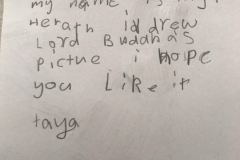 my name is
Herath Id drew
Lord Buddhas
pictue i hope
you Like it
taya